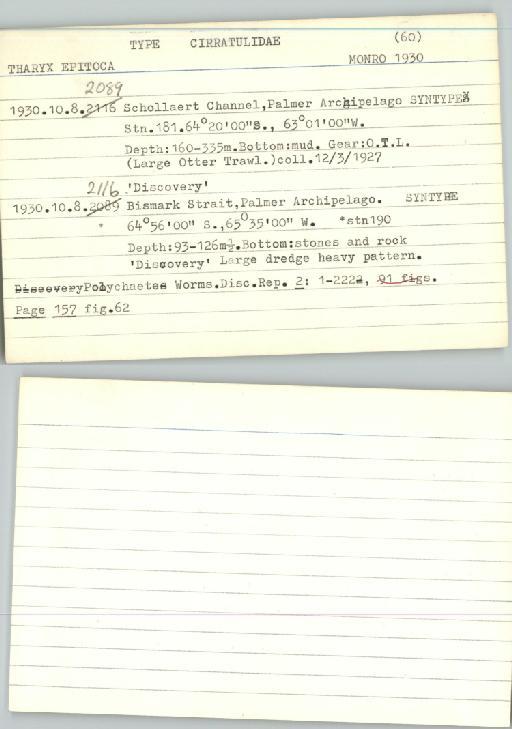 TYPE CIRRATULIDAE (60)
THARYX EPITOCA MONRO 1930
2089
1930.10.8.2116 Schollaert Channel,Palmer Archipelago SYNTYPE
Stn.181.64°20'00"S., 63°01'00"W.
Depth:160-335m.Bottom:mud. Gear:O.T.L.
(Large Otter Trawl.)coll.12/3/1927
2116 'Discovery'
1930.10.8.2089 Bismark Strait,Palmer Archipelago. SYNTYPE
* 64°56'00" S.,65°35'00" W. *stn190
Depth:93-126m½.Bottom:stones and rock
'Discovery' Large dredge heavy pattern.
DiscoveryPolychaetes Worms.Disc.Rep. 2: 1-222, 91 figs.
Page 157 fig.62